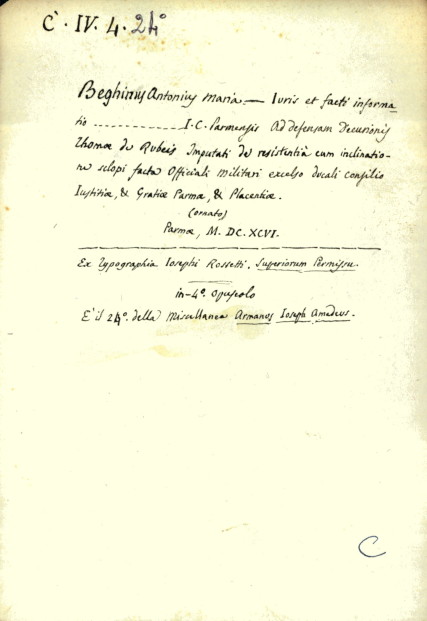 C · IV. 4. 24°
Beghinius Antonius Maria — Iuris et facti informa
tio ------------ I. C. Parmensis Ad defensam Decurionis
Thomæ de Rubeis Imputati de resistentia cum inclinatio-
ne sclopi facta Officiali Militari excelso ducali consilio
Iustitiæ, & Gratiæ Parmæ, & Placentiæ.
(ornato)
Parmæ, M. DC. XCVI.
Ex Typographia Iosephi Rossetti. Superiorum Permissu.
in-4° opuscolo
E' il 24° della Miscellanea Armanos Ioseph Amadeus.
C